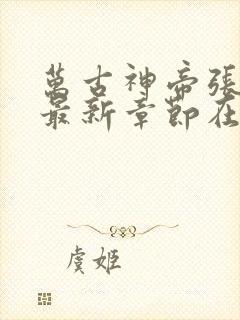 萬古神帝張
最新章節在
虞姬